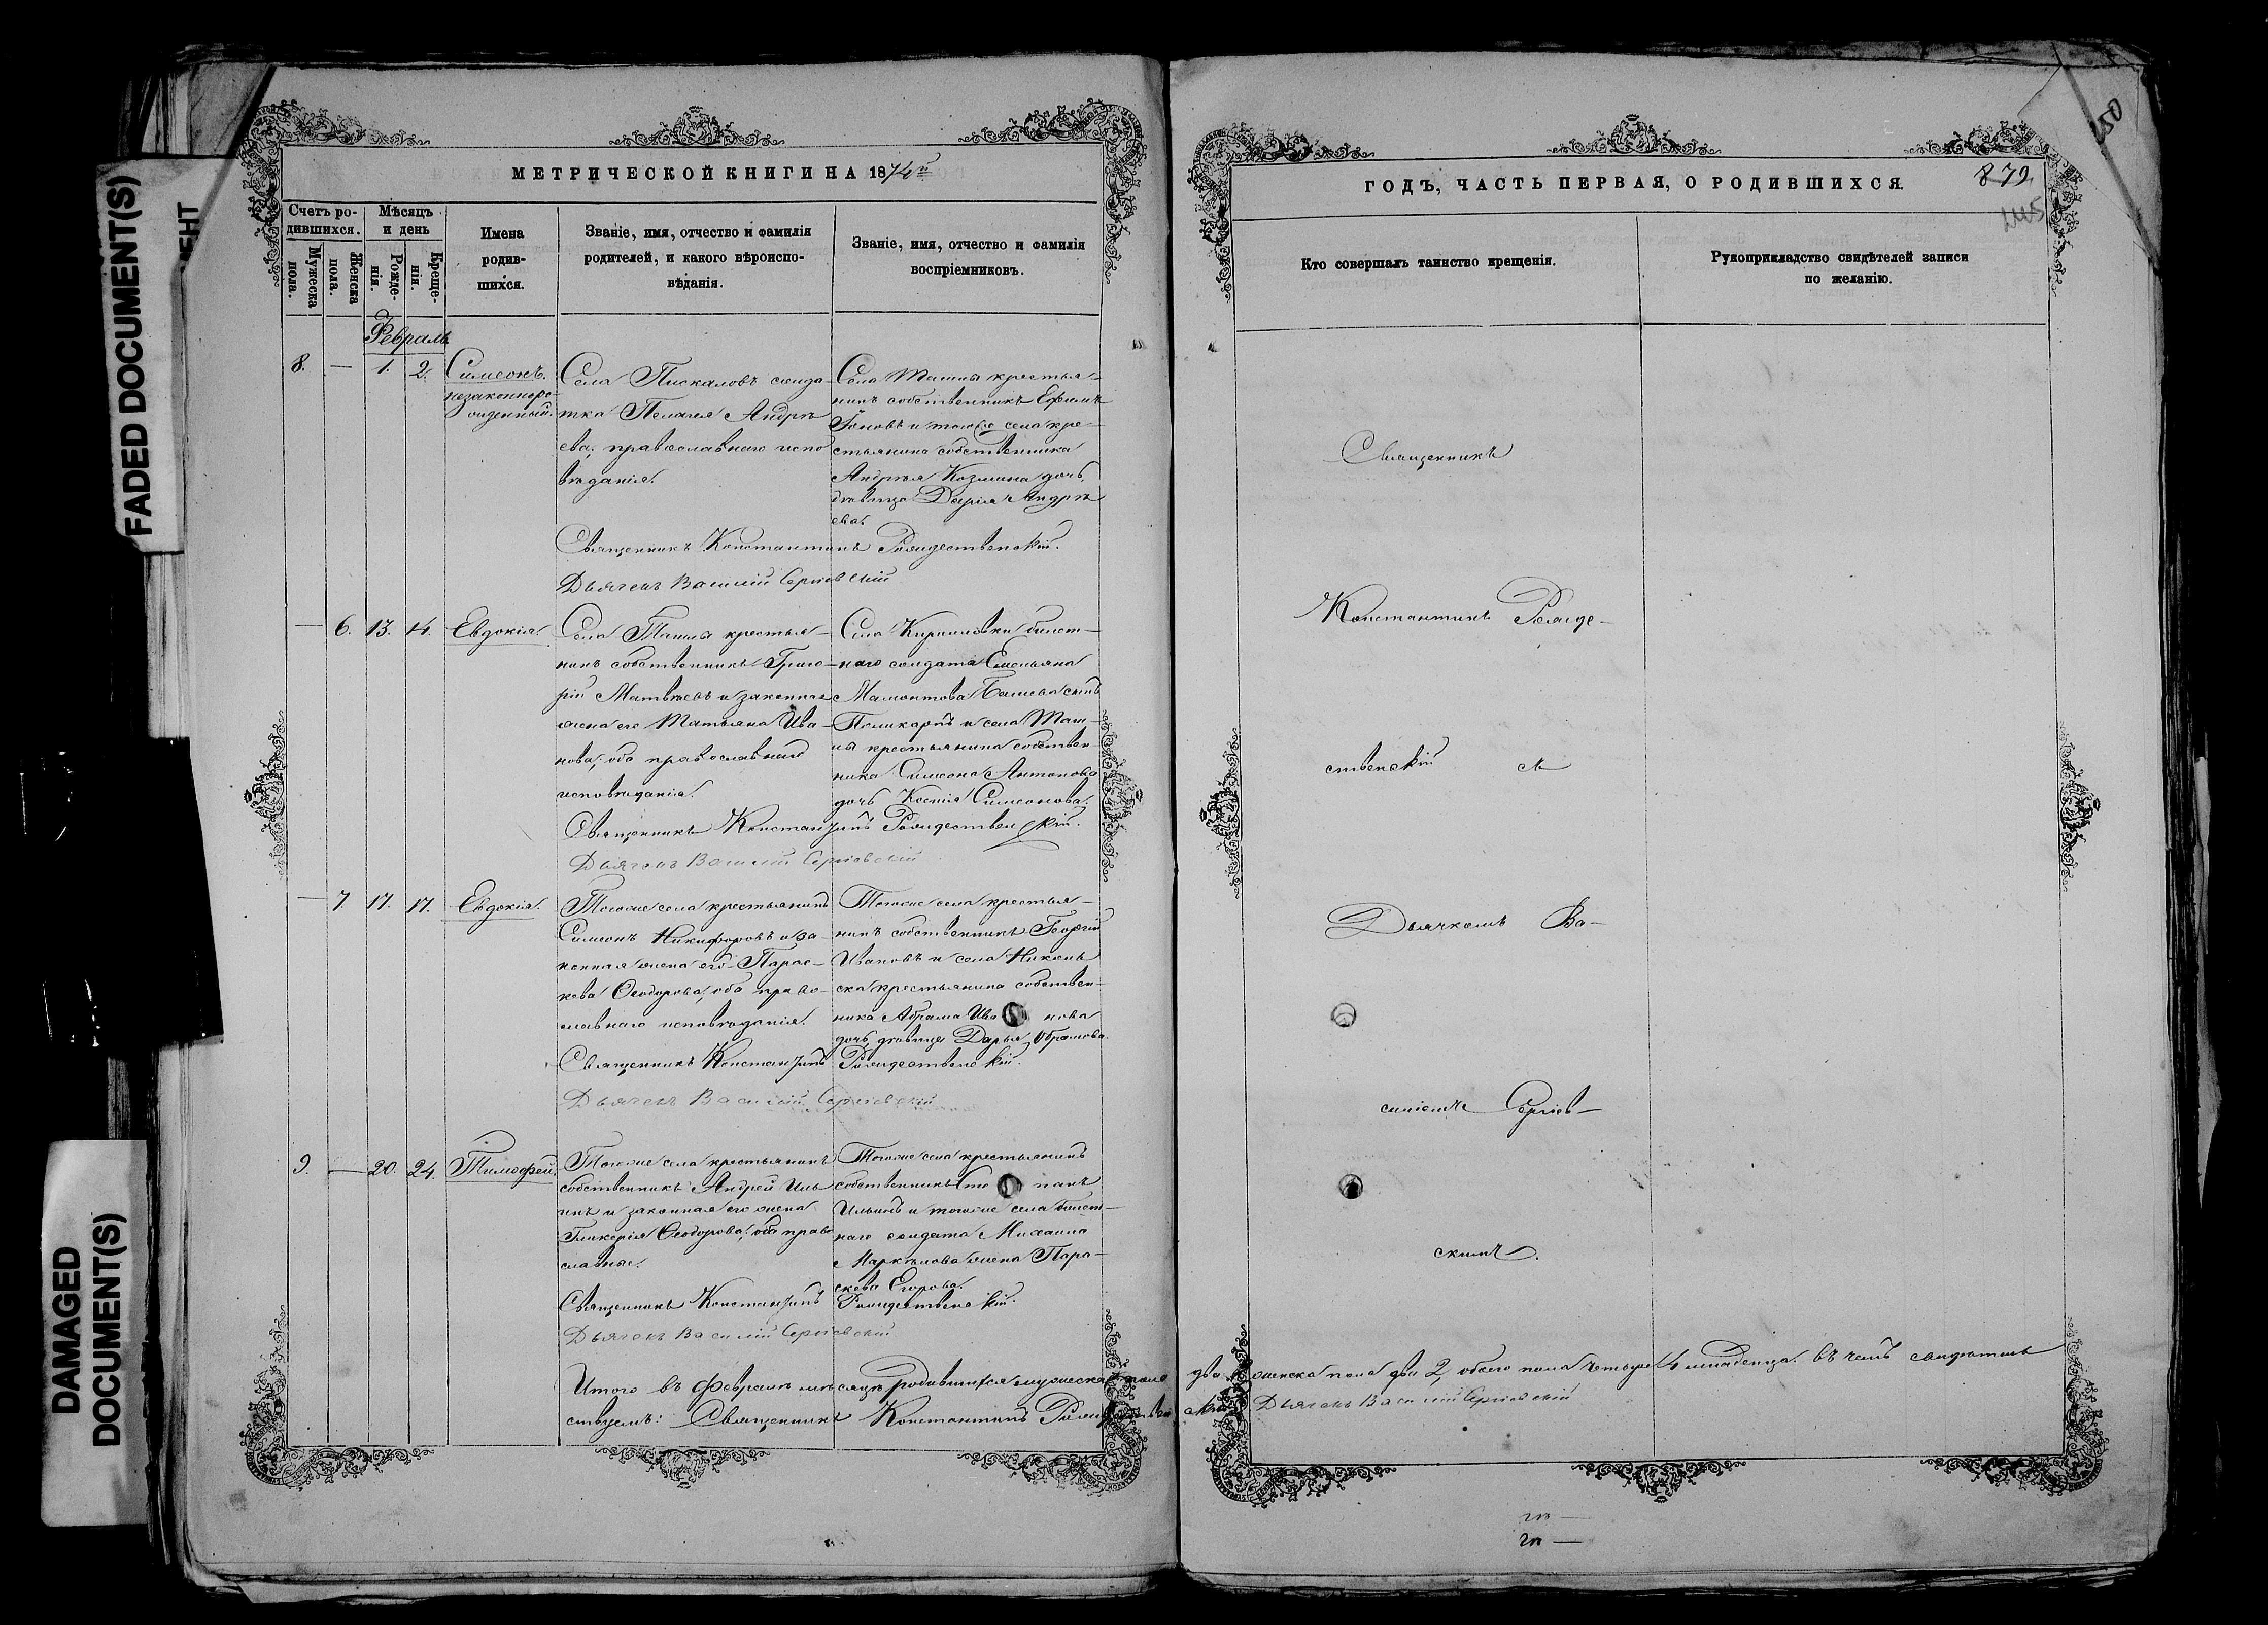 FADED DOCUMENT(S)
DAMAGED
DOCUMENT(S)
МЕТРИЧЕСКОЙ КНИГИ НА 1874й
Счетъ ро-
дившихся.
Мужеска
пола.
Женска
пола.
Мѣсяцъ
и день
Рожде-
нія.
Креще-
нія.
Имена
родив-
шихся.
Званіе, имя, отчество и фамилія
родителей, и какого вѣроиспо-
вѣданія.
Званіе, имя, отчество и фамилія
воспріемниковъ.
Февраль
8. — 1. 2. Симеонъ.
незаконноро-
жденный.
Села Пискаловъ солда-
тка Пелагея Андре
ева, православнаго испо
вѣданія.
Села Ташлы крестья-
нинъ собственникъ Ефимъ
и того же села кре-
стьянина собственника
Андрея Козмина дочь,
дѣвица Дарія Андре
ева.
Священникъ Константинъ Рождественскій.
Дьячекъ Василій Сергіевскій
— 6. 13. 14. Евдокія.
Села Ташлы крестья-
нинъ собственникъ Григо-
рій Матвѣевъ и законная
жена его Татьяна Ива-
нова, оба православнаго
исповѣданія.
Села Кирилловки билет-
наго солдата Емельяна
Мамонтова сынъ
Поликарпъ и села Таш-
лы крестьянина собствен-
ника Симеона Антонова
дочь Ксенія Симеонова.
Священникъ Константинъ Рождественскій.
Дьячекъ Василій Сергіевскій
— 7. 17. 17. Евдокія.
Тогоже села крестьянинъ
Симеонъ Никифоровъ и за-
конная жена его Парас-
кева Ѳеодорова, оба право-
славнаго исповѣданія.
Тогоже села крестья-
нинъ собственникъ Георгій
Ивановъ и села Николь
ска крестьянина собствен-
ника Абрама Ива нова
дочь, дѣвица Дарья Абрамова.
Священникъ Константинъ Рождественскій.
Дьячекъ Василій Сергіевскій
9. — 20. 24. Тимофей.
Тогоже села крестьянинъ
собственникъ Андрей Иль
инъ и законная его жена
Гликерія Ѳеодорова, оба право
славные.
Тогоже села крестьянинъ
собственникъ Сте панъ
Ильинъ и тогоже села билет-
наго солдата Михаила
Маркелова жена Пара-
скева Егорова.
Священникъ Константинъ Рождественскій.
Дьячекъ Василій Сергіевскій
Итого въ Февралѣ мѣсяцѣ родившихся мужеска пола
ствуемъ: Священникъ Константинъ Рождествен
50
ГОДЪ, ЧАСТЬ ПЕРВАЯ, О РОДИВШИХСЯ.
879
Кто совершалъ таинство крещенія.
Рукоприкладство свидѣтелей записи
по желанію.
Священникъ
Константинъ Рожде-
ственскій съ
Дьячкомъ Ва-
силіемъ Сергіев-
скимъ.
два женска пола два 2, обоего пола четыре 4 младенца. въ чемъ свидѣтель
скій Дьячекъ Василій Сергіевскій